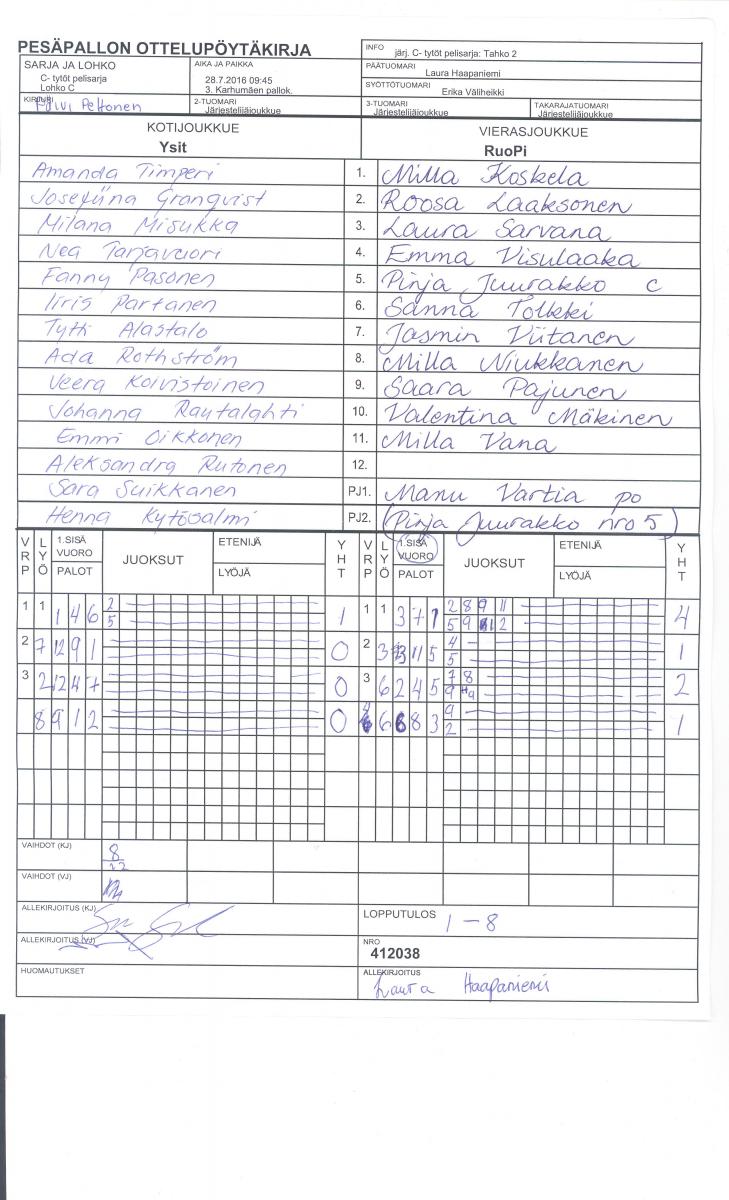 PESÄPALLON OTTELUPÖYTÄKIRJA
INFO järj. C- tytöt pelisarja: Tahko 2
SARJA JA LOHKO
C- tytöt pelisarja
Lohko C
AIKA JA PAIKKA
28.7.2016 09:45
3. Karhumäen pallok.
PÄÄTUOMARI Laura Haapaniemi
SYÖTTÖTUOMARI Erika Väliheikki
KIRJURI Päivi Peltonen
2-TUOMARI Järjestelijäjoukkue
3-TUOMARI Järjestelijäjoukkue
TAKARAJATUOMARI Järjestelijäjoukkue
KOTIJOUKKUE VIERASJOUKKUE
Ysit RuoPi
Amanda Timperi 1. Milla Koskela
Josefiina Granqvist 2. Roosa Laaksonen
Milana Misukka 3. Laura Sarvana
Nea Tarjavuori 4. Emma Visulaaka
Fanny Pasonen 5. Pinja Juurakko c
Iiris Partanen 6. Sanna Tolkki
Tytti Alastalo 7. Jasmin Viitanen
Ada Rothström 8. Milla Niukkanen
Veera Koivistoinen 9. Saara Pajunen
Johanna Rautalahti 10. Valentina Mäkinen
Emmi Oikkonen 11. Milla Vana
Aleksandra Rutonen 12.
Sara Suikkanen PJ1. Manu Vartia po
Henna Kytösalmi PJ2. (Pinja Juurakko nro 5)
VRP LYÖ 1.SISÄ VUORO PALOT JUOKSUT ETENIJÄ LYÖJÄ YHT VRP LYÖ 1.SISÄ VUORO PALOT JUOKSUT ETENIJÄ LYÖJÄ YHT
1 1 1 4 6 2 1 1 1 3 7 1 2 8 9 11 4
5 5 9 12
2 7 12 9 1 0 2 3 11 5 4 1
5
3 2 12 4 7 0 3 6 2 4 5 7 8 2
9
8 9 1 2 0 6 8 3 9 1
2
VAIHDOT (KJ) 8
VAIHDOT (VJ)
ALLEKIRJOITUS (KJ)
LOPPUTULOS 1 – 8
ALLEKIRJOITUS (VJ)
NRO
412038
HUOMAUTUKSET
ALLEKIRJOITUS
Laura Haapaniemi